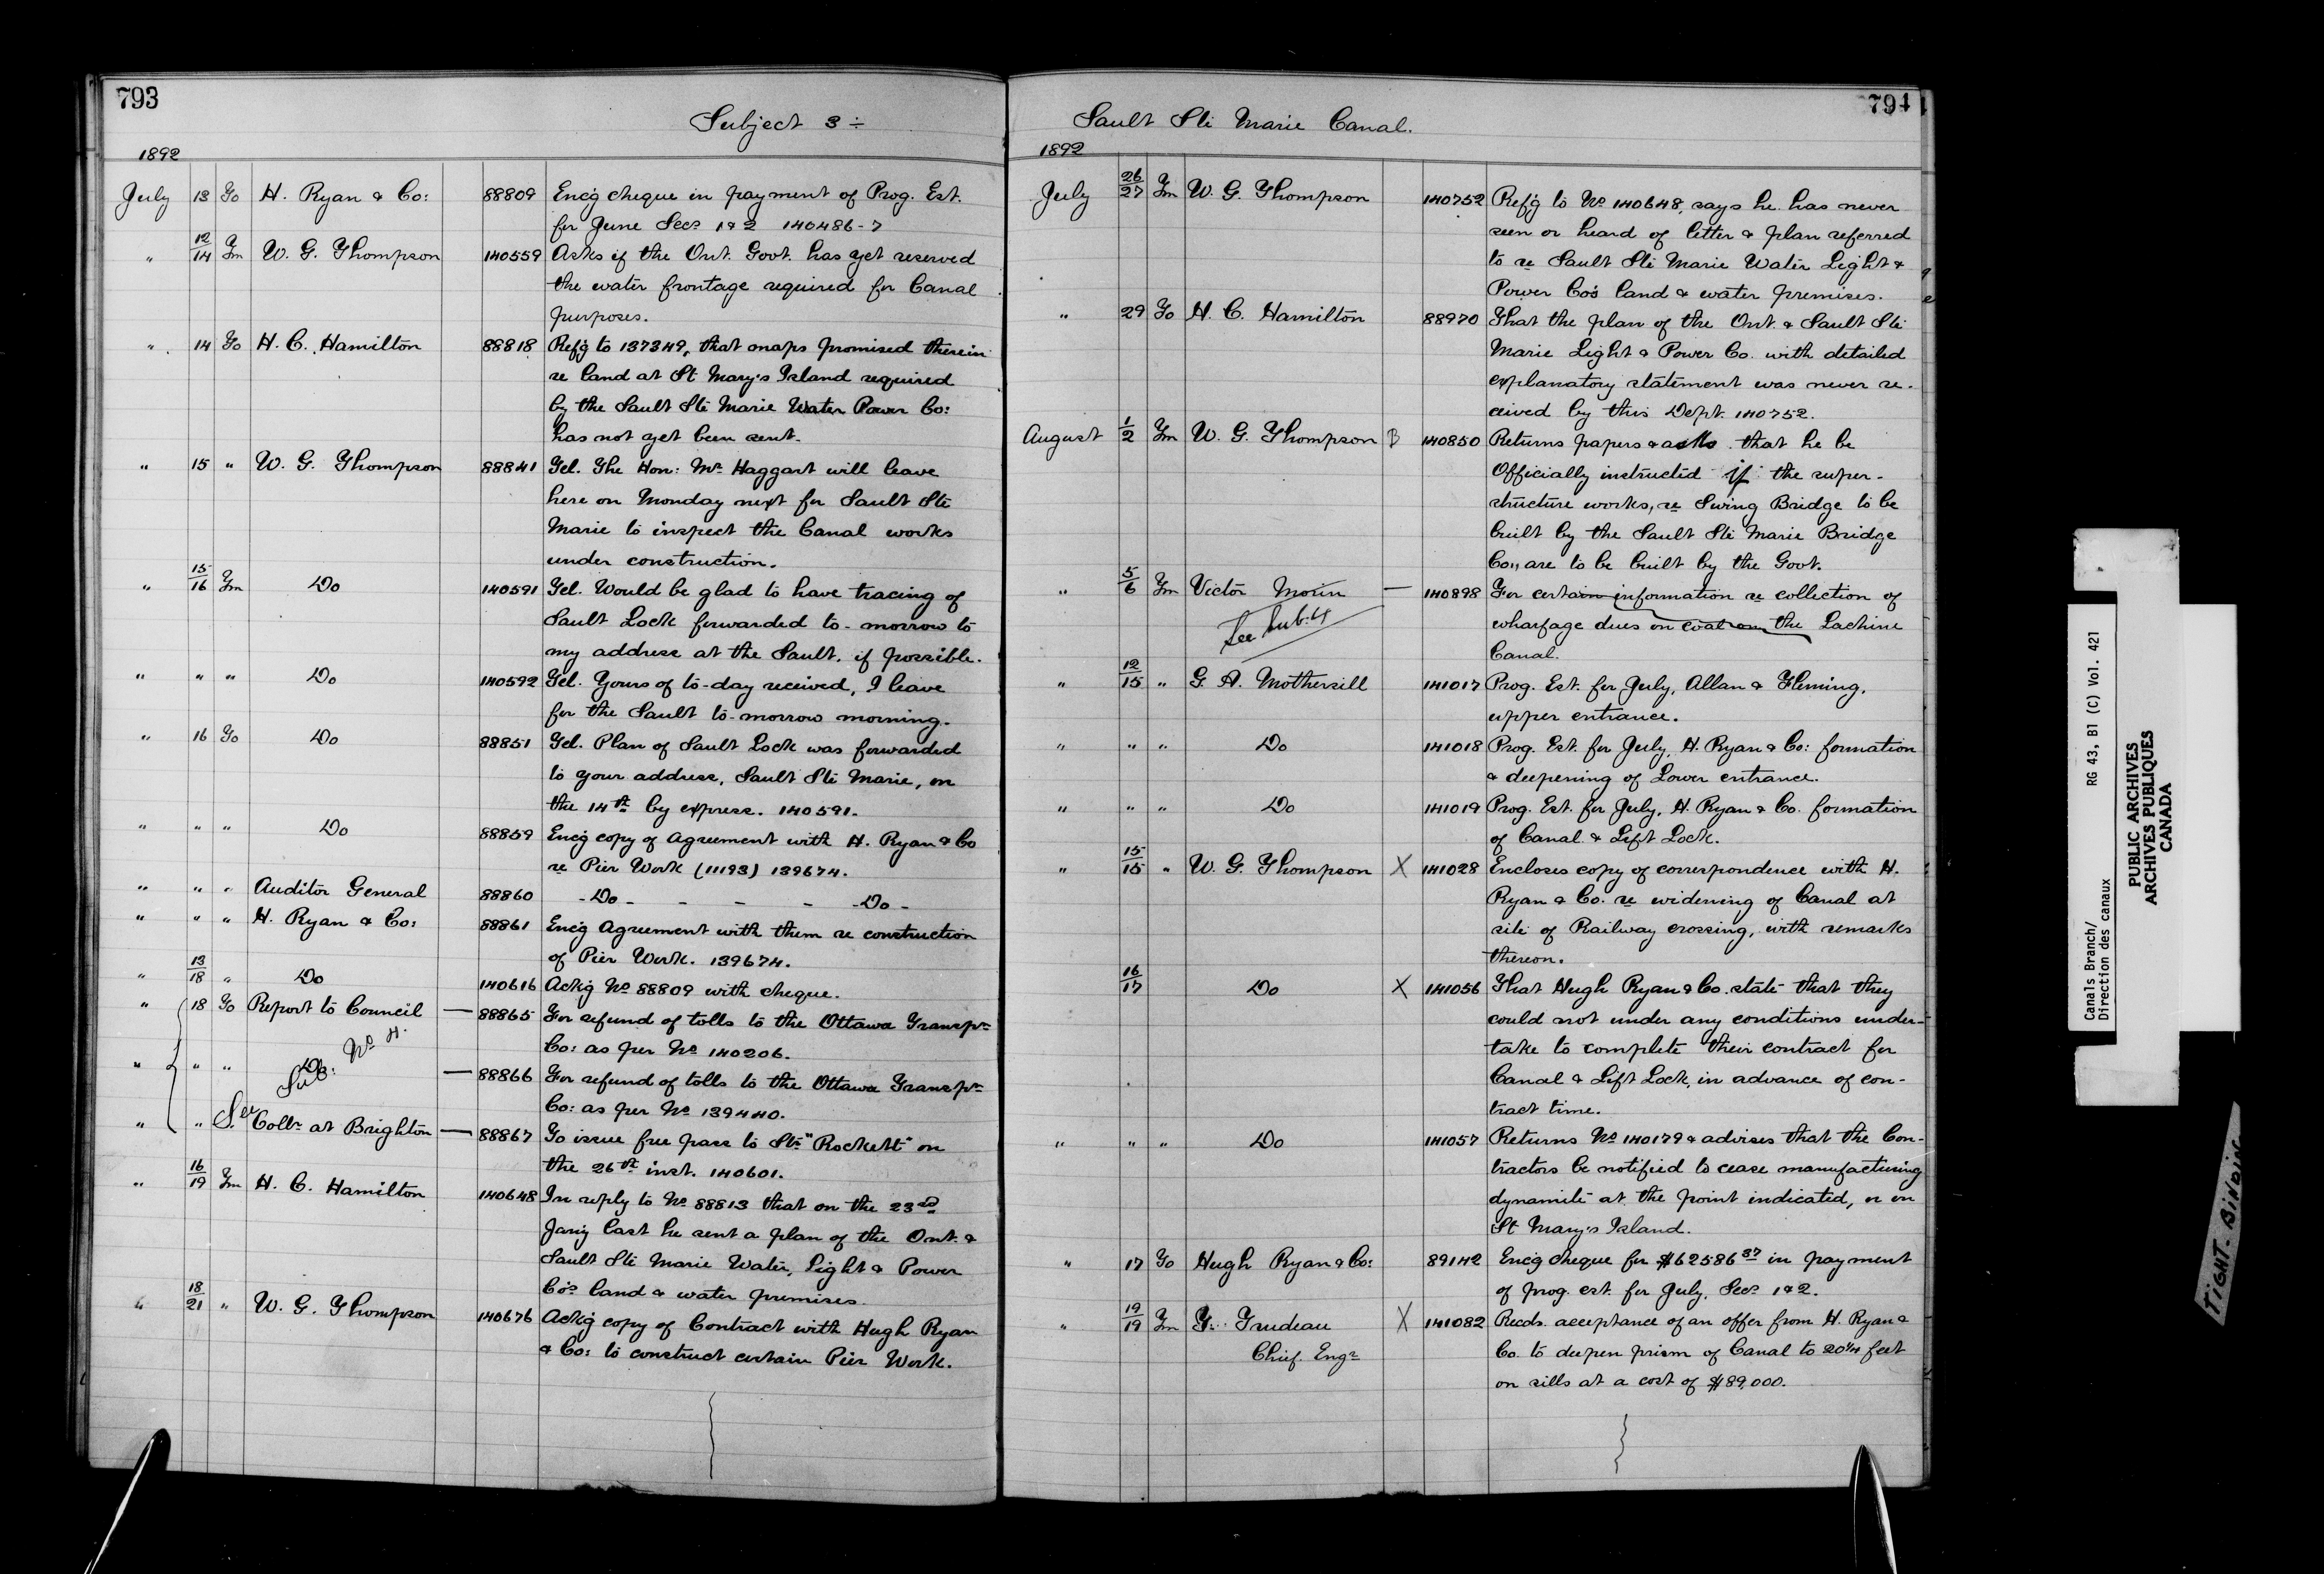 793
Subject 3 ÷
1892
July 13 To H. Ryan & Co: 88809 Enc'g cheque in payment of Prog. Est.
for June Secs 1 & 2 140486-7
" 12/14 Fm W. G. Thompson 140559 Asks if the Ont. Govt. has yet reserved
the water frontage required for Canal
purposes.
" 14 To H. C. Hamilton 88818 Ref'g to 137349, that maps promised therein
re land at St Mary's Island required
by the Sault Ste Marie Water Power Co:
has not yet been sent.
" 15 " W. G. Thompson 88841 Tel. The Hon: Mr Haggart will leave
here on Monday next for Sault Ste
Marie to inspect the Canal works
under construction.
" 15/16 Fm Do 140591 Tel. Would be glad to have tracing of
Sault Lock forwarded to-morrow to
my address at the Sault, if possible.
" " " Do 140592 Tel. Yours of to-day received, I leave
for the Sault to-morrow morning.
" 16 To Do 88851 Tel. Plan of Sault Lock was forwarded
to your address, Sault Ste Marie, on
the 14th by express. 140591.
" " " Do 88859 Enc'g copy of Agreement with H. Ryan & Co
re Pier Work (11193) 139674.
" " " Auditor General 88860 - Do - - - - - Do -
" " " H. Ryan & Co: 88861 Enc'g Agreement with them re construction
of Pier Work. 139674.
" 13/18 " Do 140616 Ack'g No 88809 with cheque.
" 18 To Report to Council — 88865 For refund of tolls to the Ottawa Transpn
Co: as per No 140206.
" " " Do — 88866 For refund of tolls to the Ottawa Transpn
See Sub: No 4.
Co: as per No 139440.
" " " Collr at Brighton — 88867 To issue free pass to Str "Rockett" on
the 26th inst. 140601.
" 16/19 Fm H. C. Hamilton 140648 In reply to No 88813 that on the 23rd
Jan'y last he sent a plan of the Ont. &
Sault Ste Marie Water, Light & Power
Co's land & water premises.
" 18/21 " W. G. Thompson 140676 Ack'g copy of Contract with Hugh Ryan
& Co: to construct certain Pier Work.
794
Sault Ste Marie Canal.
1892
July 26/27 Fm W. G. Thompson 140752 Ref'g to No 140648, says he has never
seen or heard of letter & plan referred
to re Sault Ste Marie Water Light &
Power Co's land & water premises.
" 29 To H. C. Hamilton 88970 That the plan of the Ont. & Sault Ste
Marie Light & Power Co. with detailed
explanatory statement was never re-
ceived by this Dept. 140752.
August 1/2 Fm W. G. Thompson B 140850 Returns papers & asks that he be
Officially instructed if the super-
structure works, re Swing Bridge to be
built by the Sault Ste Marie Bridge
Co., are to be built by the Govt.
" 5/6 Fm Victor Morin — 140898 For certain information re collection of
See Sub. 4
wharfage dues on coal on the Lachine
Canal.
" 12/15 " G. A. Mothersill 141017 Prog. Est. for July, Allan & Fleming,
upper entrance.
" " " Do 141018 Prog. Est. for July, H. Ryan & Co: formation
& deepening of Lower entrance.
" " " Do 141019 Prog. Est. for July, H. Ryan & Co. formation
of Canal & Lift Lock.
" 15/15 " W. G. Thompson X 141028 Encloses copy of correspondence with H.
Ryan & Co. re widening of Canal at
site of Railway crossing, with remarks
thereon.
16/17 Do X 141056 That Hugh Ryan & Co. state that they
could not under any conditions under-
take to complete their contract for
Canal & Lift Lock, in advance of con-
tract time.
" " " Do 141057 Returns No 140179 & advises that the Con-
tractors be notified to cease manufacturing
dynamite at the point indicated, or on
St Mary's Island.
" 17 To Hugh Ryan & Co: 89142 Enc'g cheque for $62586 87 in payment
of prog. est. for July, Secs 1 & 2.
" 19/19 Fm T. Trudeau X 141082 Recds. acceptance of an offer from H. Ryan &
Chief Engr
Co. to deepen prism of Canal to 20 1/4 feet
on sills at a cost of $89,000.
Canals Branch/ RG 43, B1 (C) Vol. 421
Direction des canaux
PUBLIC ARCHIVES
ARCHIVES PUBLIQUES
CANADA
TIGHT BINDING